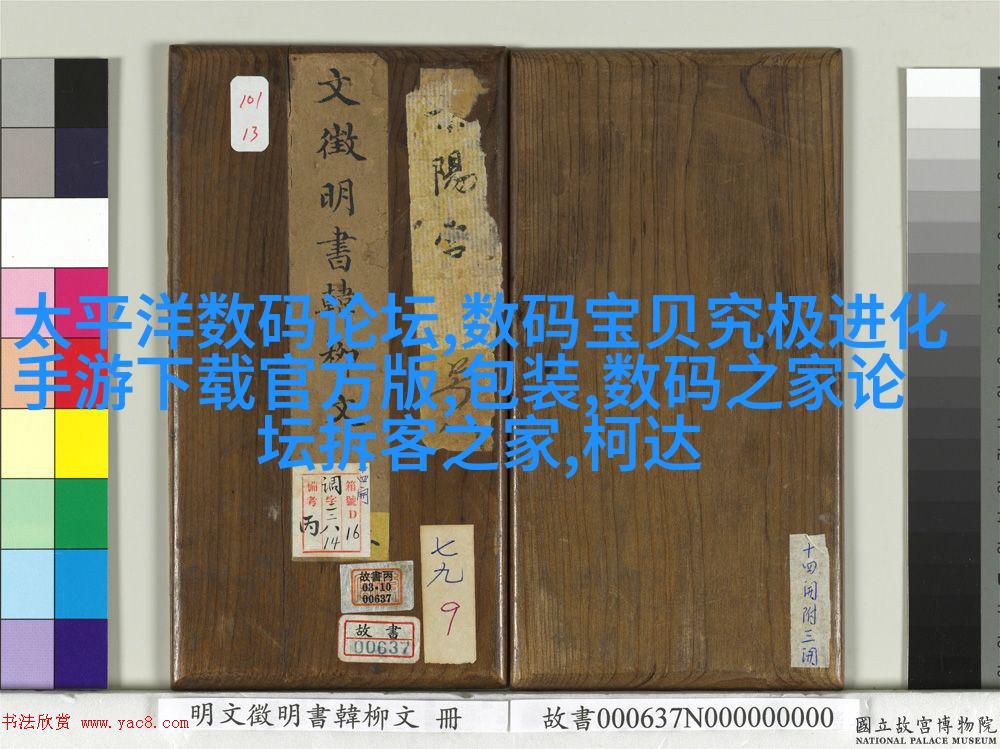 101
13
文徵明書韓柳文
陽宮
號
太平洋数码论坛,数码宝贝究极进化
手游下载官方版,包装,数码之家论
坛拆客之家,柯达
四開
箱號D
16
调字三八
14
備考
丙
故書丙
03·10
00637
故書
00637
七九
9
十四開附三開
明文徵明書韓柳文 冊
故書000637N000000000
國立故宮博物院
NATIONAL PALACE MUSEUM
书法欣赏 www.yac8.com